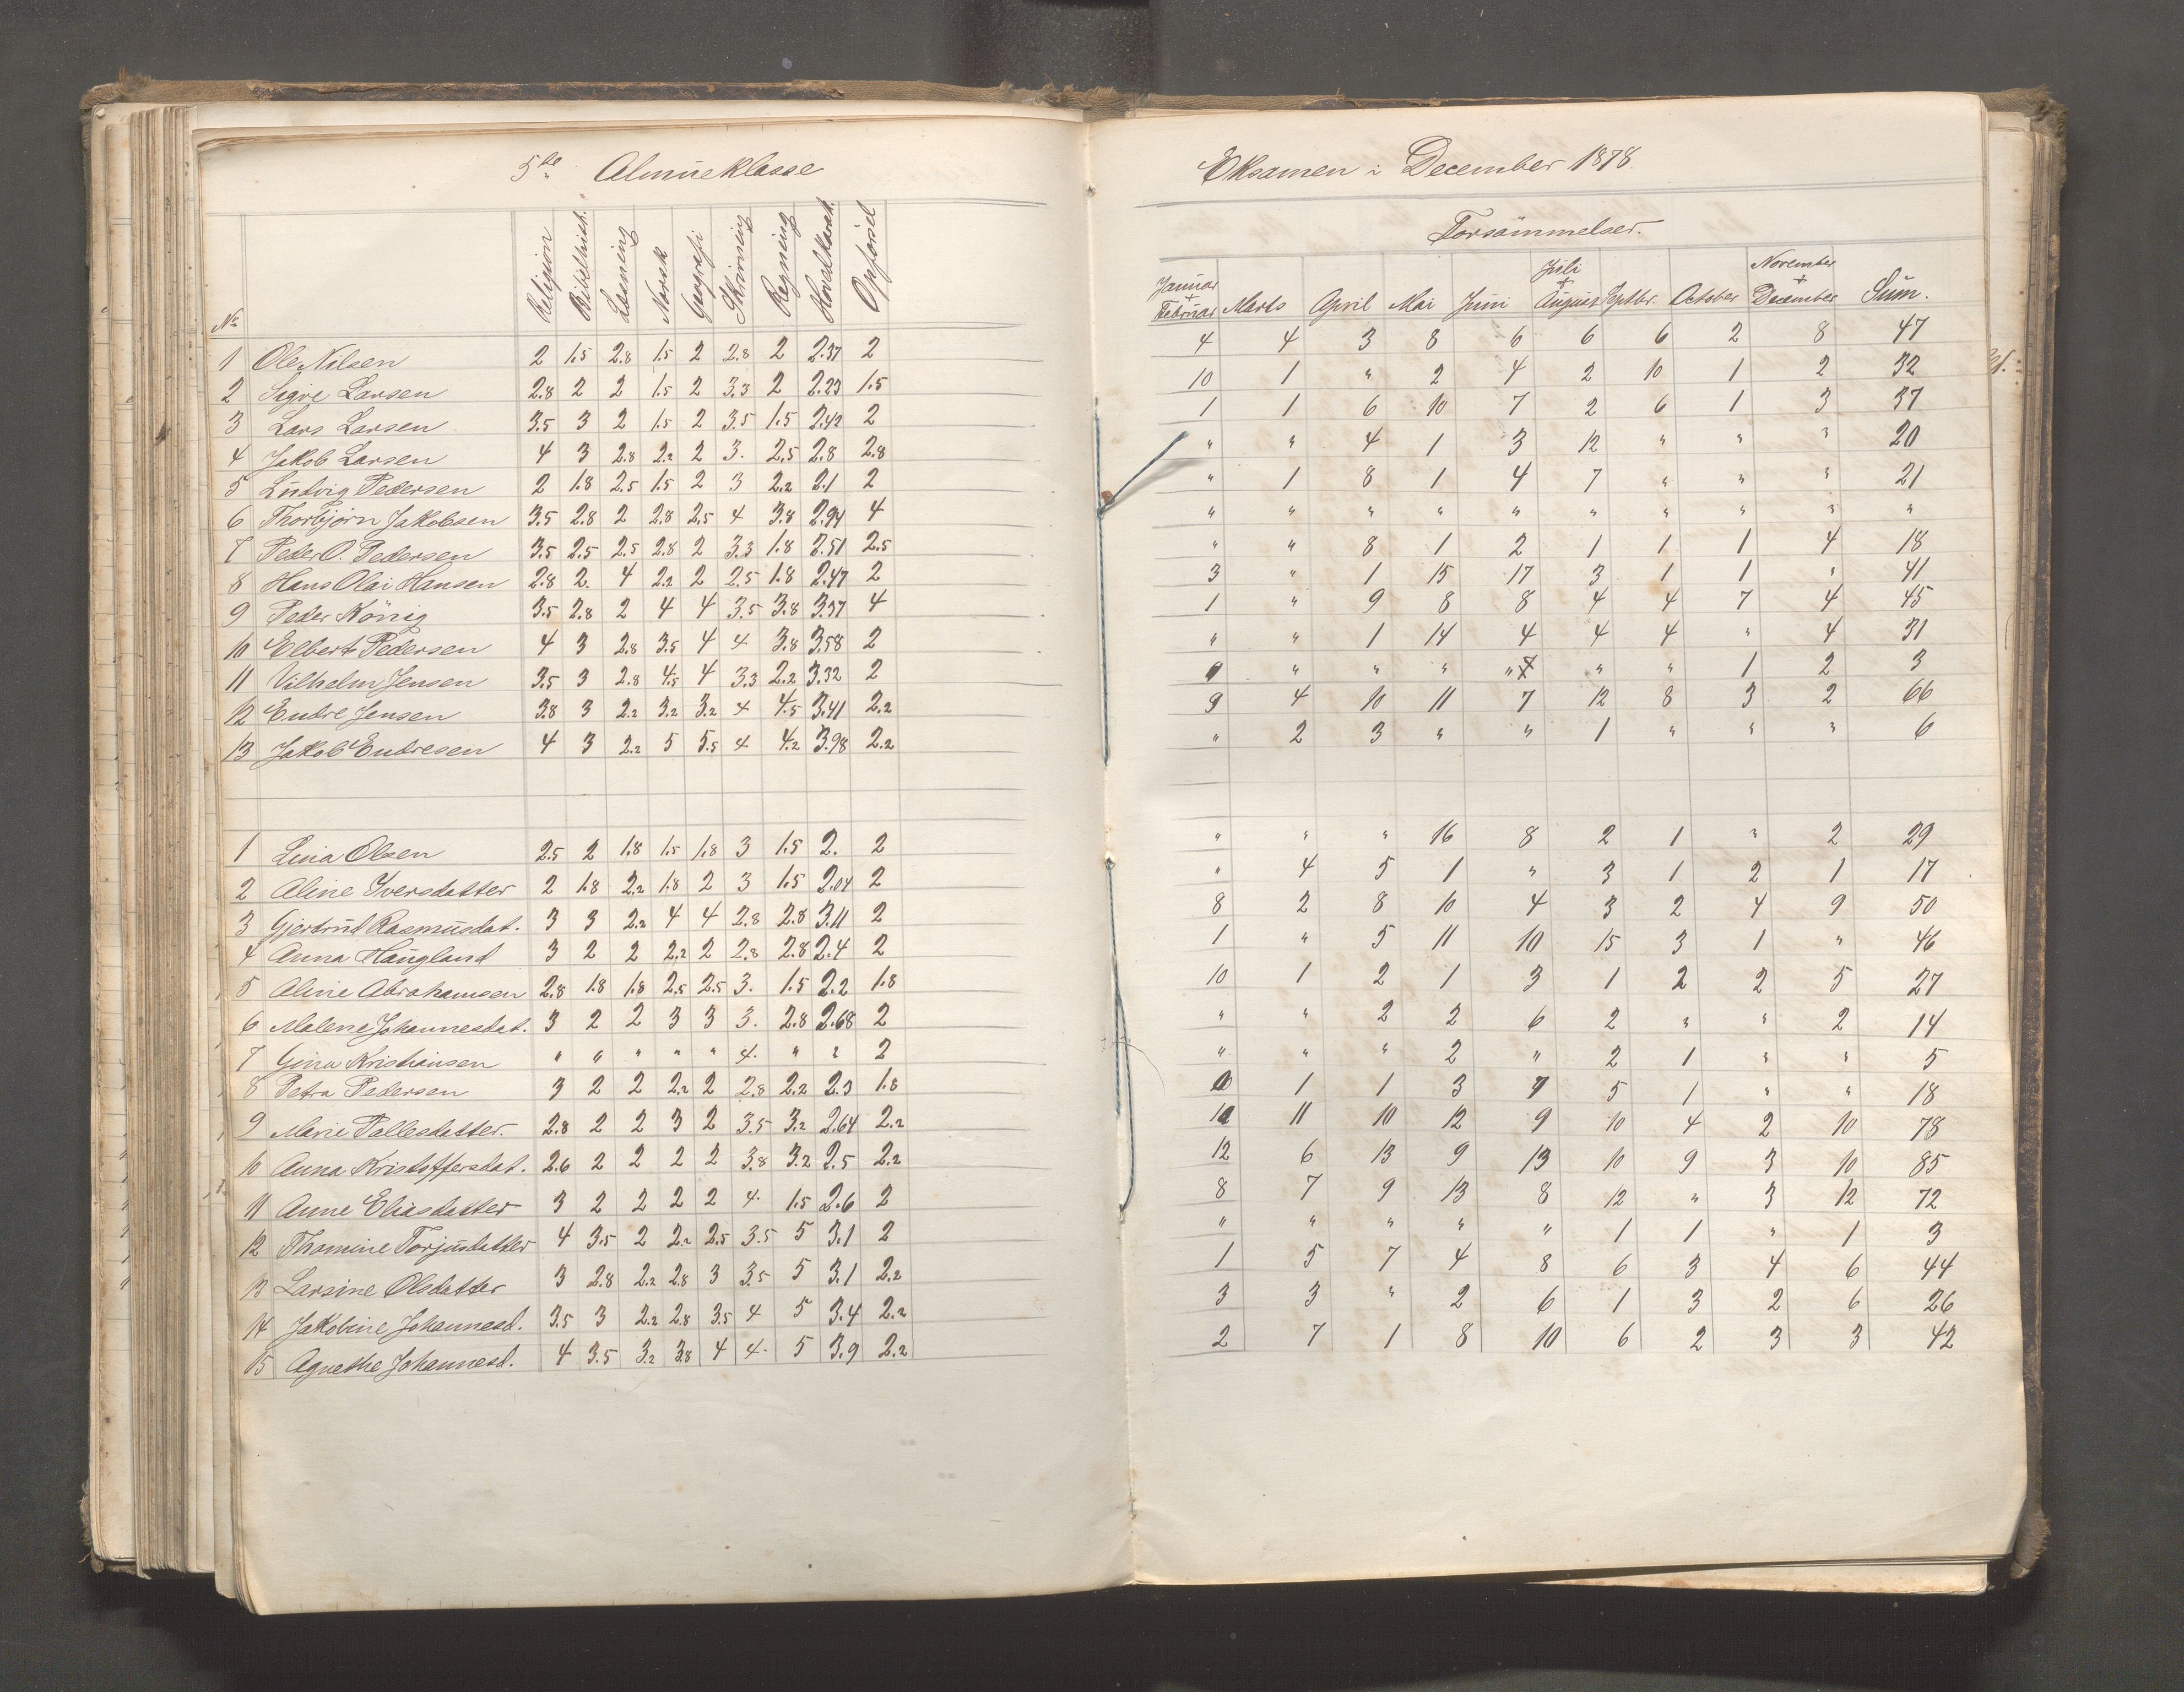 5te Almueklasse
No Religion Bibelhist. Læsning Norsk Geografi Skrivning Regning Hovedkarak. Opførsel
1 Ole Nilsen 2 1.5 2.8 1.5 2 2.8 2 2.37 2
2 Sigve Larsen 2.8 2 2 1.5 2 3.3 2 2.23 1.5
3 Lars Larsen 3.5 3 2 1.5 2 3.5 1.5 2.42 2
4 Jakob Larsen 4 3 2.8 2.2 2 3. 2.5 2.8 2.8
5 Ludvig Pedersen 2 1.8 2.5 1.5 2 3 2.2 2.1 2
6 Thorbjørn Jakobsen 3.5 2.8 2 2.8 2.5 4 3.8 2.94 4
7 Peder O. Pedersen 3.5 2.5 2.5 2.8 2 3.3 1.8 2.51 2.5
8 Hans Olai Hansen 2.8 2. 4 2.2 2 2.5 1.8 2.47 2
9 Peder König 3.5 2.8 2 4 4 3.5 3.8 3.37 4
10 Elbert Pedersen 4 3 2.8 3.5 4 4 3.8 3.58 2
11 Vilhelm Jensen 3.5 3 2.8 4.5 4 3.3 2.2 3.32 2
12 Endre Jensen 3.8 3 2.2 3.2 3.2 4 4.5 3.41 2.2
13 Jakob Endresen 4 3 2.2 5 5.5 4 4.2 3.98 2.2
1 Lina Olsen 2.5 2 1.8 1.5 1.8 3 1.5 2. 2
2 Aline Iversdatter 2 1.8 2.2 1.8 2 3 1.5 2.04 2
3 Gjertrud Rasmusdat. 3 3 2.2 4 4 2.8 2.8 3.11 2
4 Anna Haugland 3 2 2 2.2 2 2.8 2.8 2.4 2
5 Aline Abrahamsen 2.8 1.8 1.8 2.5 2.5 3. 1.5 2.2 1.8
6 Malena Johannesdat. 3 2 2 3 3 3. 2.8 2.68 2
7 Gina Kristiansen " " " " " 4. " " 2
8 Petra Pedersen 3 2 2 2.2 2 2.8 2.2 2.3 1.8
9 Marie Pallesdatter. 2.8 2 2 3 2 3.5 3.2 2.64 2.2
10 Anna Kristoffersdat. 2.6 2 2 2 2 3.8 3.2 2.5 2.2
11 Anne Eliasdatter 3 2 2 2 2 4. 1.5 2.6 2
12 Thomine Torjusdatter 4 3.5 2 2.2 2.5 3.5 5 3.1 2
13 Larsine Olsdatter 3 2.8 2.2 2.8 3 3.5 5 3.1 2.2
14 Jakobine Johannesd. 3.5 3 2.2 2.8 3.5 4 5 3.4 2.2
15 Agnethe Johannesd. 4 3.5 3.2 3.8 4 4. 5 3.9 2.2
Eksamen i December 1878.
Forsømmelser.
Januar + Februar Marts April Mai Juni Juli + August Septbr. October November + December Sum.
4 4 3 8 6 6 6 2 8 47
10 1 " 2 4 2 10 1 2 32
1 1 6 10 7 2 6 1 3 37
" " 4 1 3 12 " " " 20
" 1 8 1 4 7 " " " 21
" " " " " " " " " "
" " 8 1 2 1 1 1 4 18
3 " 1 15 17 3 1 1 " 41
1 " 9 8 8 4 4 7 4 45
" " 1 14 4 4 4 " 4 31
" " " " " " 1 2 3
9 4 10 11 7 12 8 3 2 66
" 2 3 " " 1 " " " 6
" " " 16 8 2 1 " 2 29
" 4 5 1 " 3 1 2 1 17
8 2 8 10 4 3 2 4 9 50
1 " 5 11 10 15 3 1 " 46
10 1 2 1 3 1 2 2 5 27
" " 2 2 6 2 " " 2 14
" " " 2 " 2 1 " " 5
1 1 3 7 5 1 " " 18
11 10 12 9 10 4 2 10 78
12 6 13 9 13 10 9 3 10 85
8 7 9 13 8 12 " 3 12 72
" " " " " 1 1 " 1 3
1 5 7 4 8 6 3 4 6 44
3 3 " 2 6 1 3 2 6 26
2 7 1 8 10 6 2 3 3 42